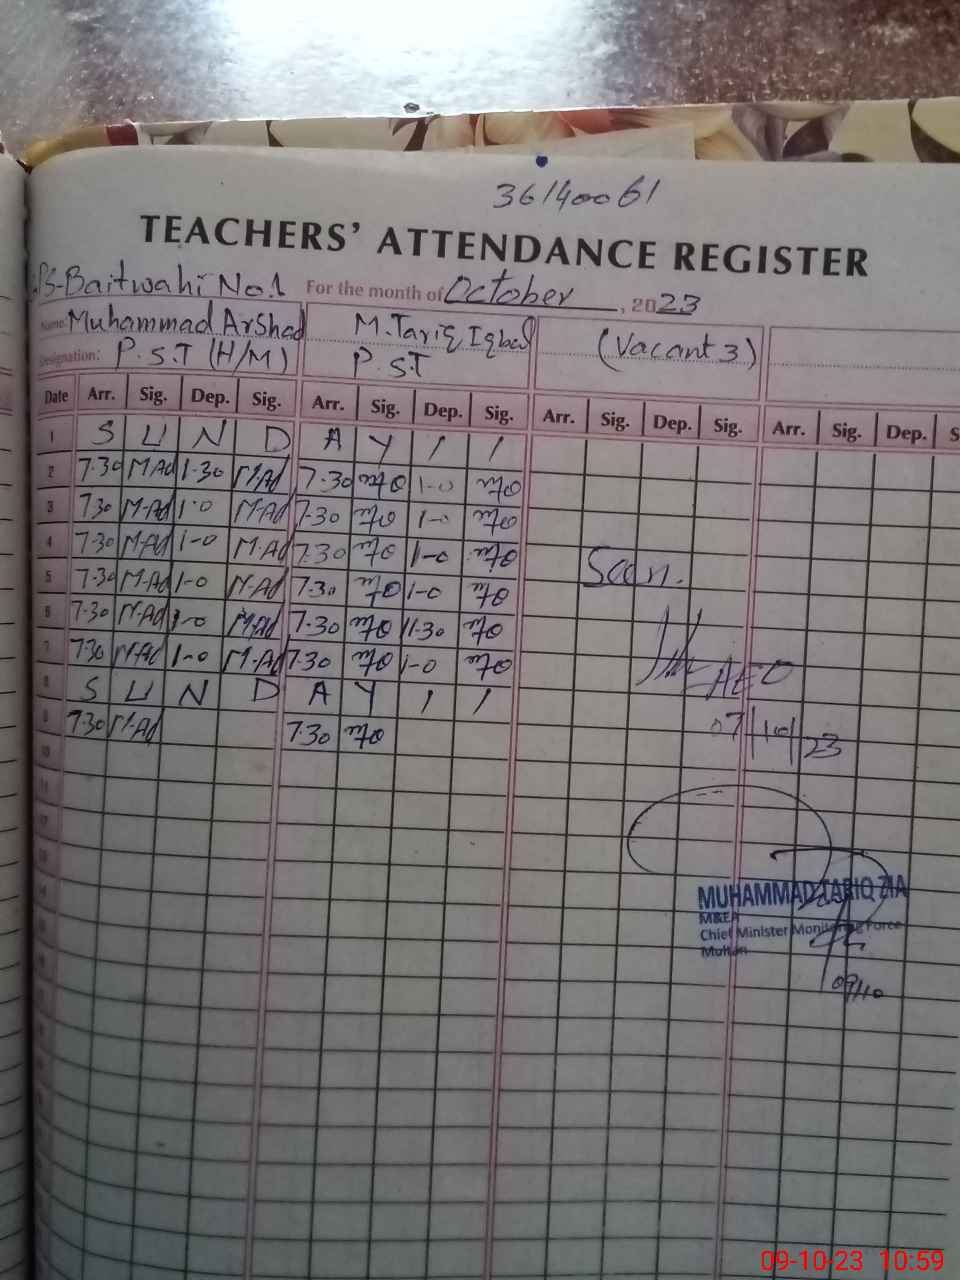 36140061
TEACHERS' ATTENDANCE REGISTER
PS-Baitwahi No.1 For the month of October, 2023
Name: Muhammad Arshad M. Tariq Iqbal (Vacant 3)
Designation: P.S.T (H/M) P.S.T
Date Arr. Sig. Dep. Sig. Arr. Sig. Dep. Sig. Arr. Sig. Dep. Sig. Arr. Sig. Dep. S
1 S U N D A Y / /
2 7.30 M.Ad 1-30 M.Ad 7.30 1-0
3 7.30 M.Ad 1-0 M.Ad 7.30 1-0
4 7.30 M.Ad 1-0 M.Ad 7.30 1-0
5 7.30 M.Ad 1-0 M.Ad 7.30 1-0
6 7.30 M.Ad 1-0 M.Ad 7.30 11.30
7 7.30 M.Ad 1-0 M.Ad 7.30 1-0
8 S U N D A Y / /
9 7.30 M.Ad 7.30
10
11
12
13
14
Seen.
AEO
07/10/23
MUHAMMAD TARIQ ZIA
M&EA
Chief Minister Monitoring Force
Multan
09/10
09-10-23 10:59